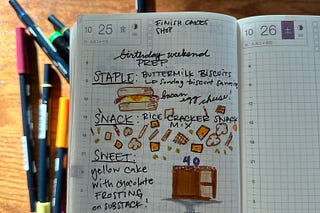 10 25 金
FINISH CARDS
SHOP
birthday weekend
PREP
STAPLE: BUTTERMILK BISCUITS
↳ Sunday biscuit sammy
bacon
egg cheese!
SNACK: RICE CRACKER SNACK
MIX
SWEET:
40
yellow cake
with chocolate
FROSTING
on SUBSTACK!
10 26 土